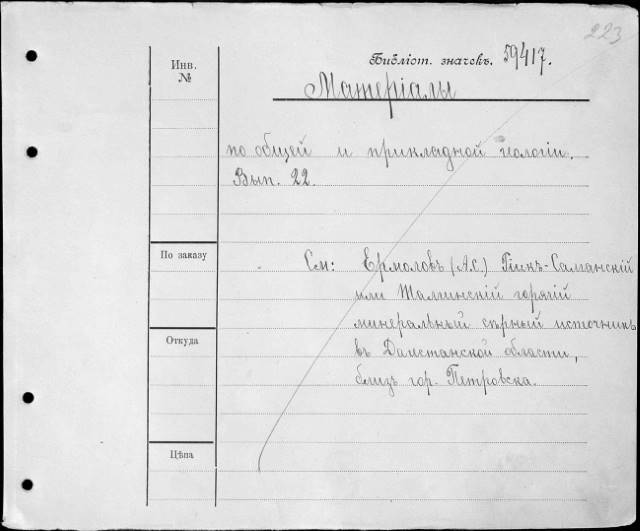 223
Инв.
№
Библіот. значекъ. 59417.
Матеріалы
по общей и прикладной геологіи.
Вып. 22.
По заказу
См: Ермоловъ (А.С.) Гіикъ-Саланскій
или Талгинскій горячій
минеральный сѣрный источникъ
Откуда
въ Дагестанской области,
близъ гор. Петровска.
Цѣна